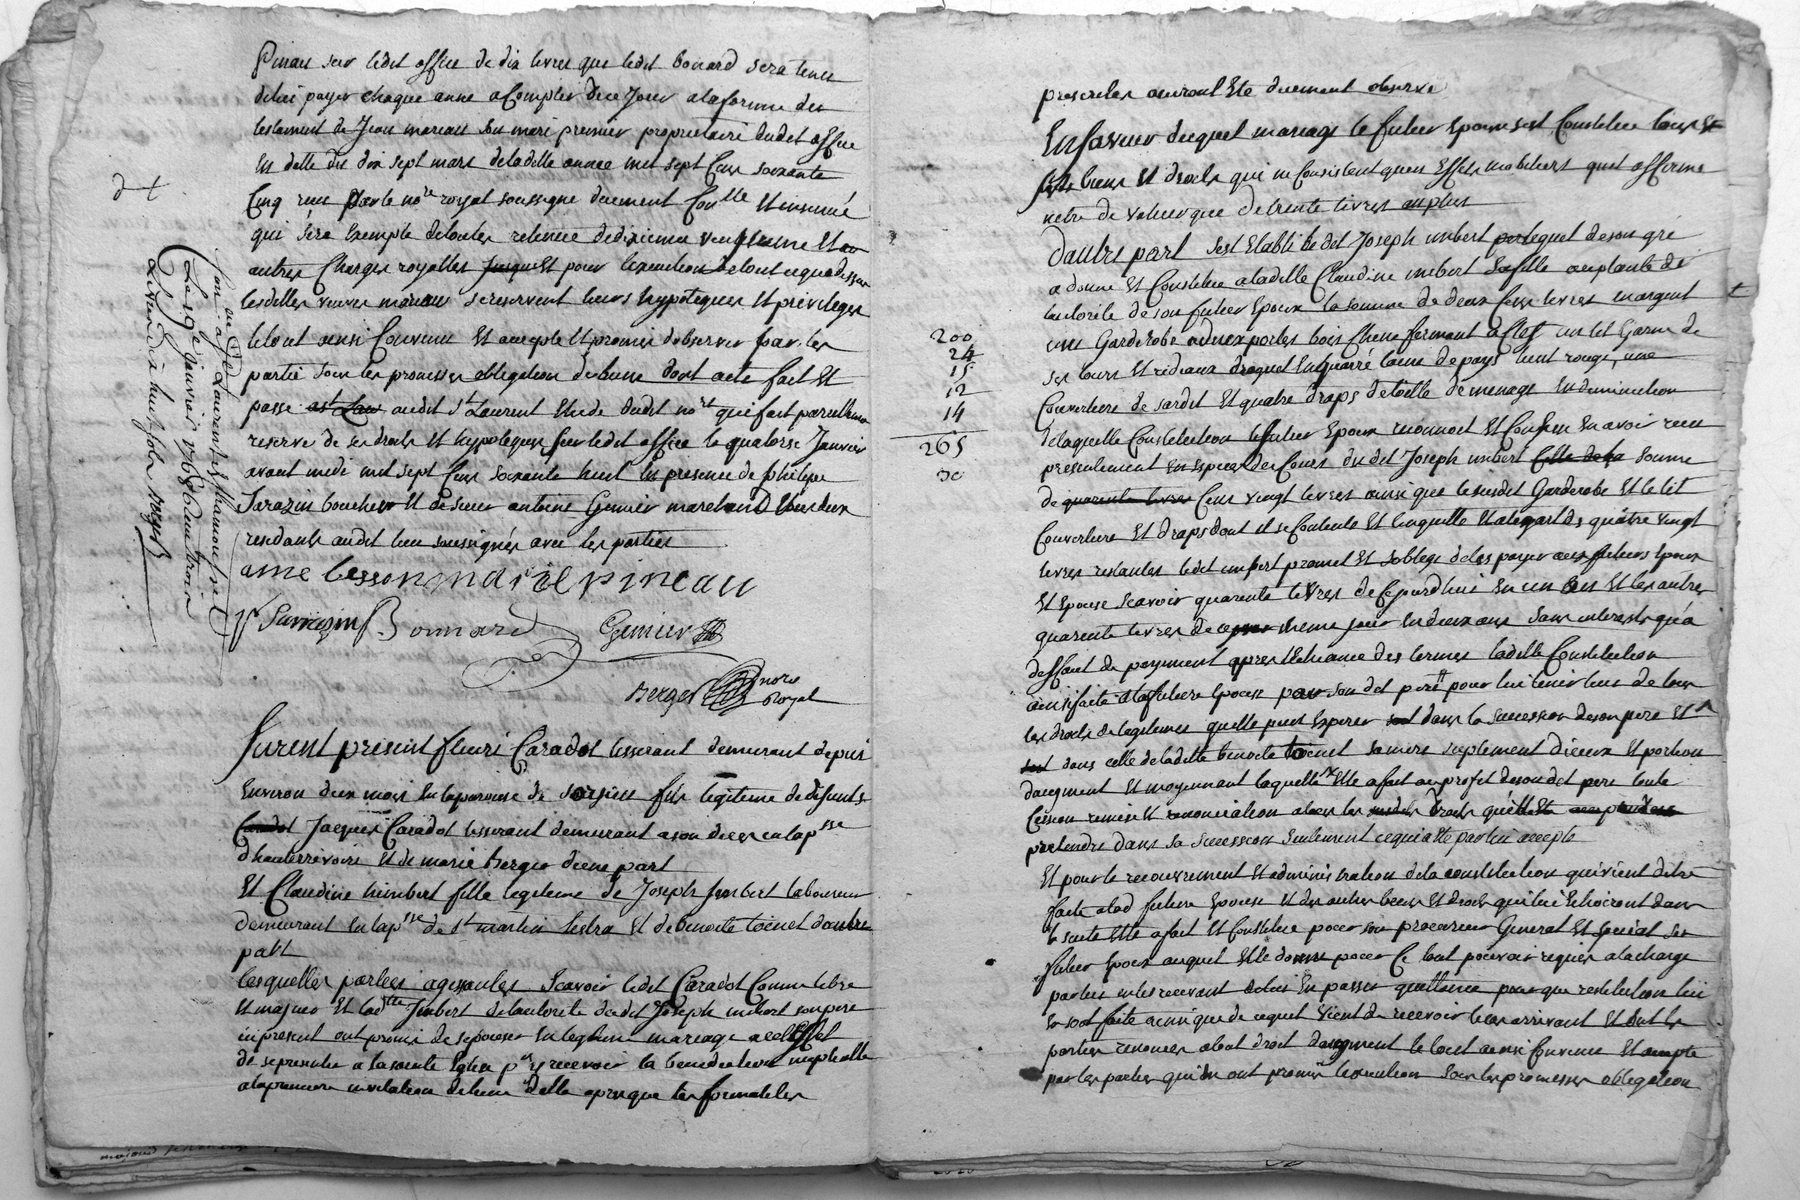 Pineau sur ledit office de dix livres que ledit bonard sera tenu
de lui payer chaque anne a Compter de ce Jour a la forme du
testament de Jean mareau son mari premier proprietaire dudit office
en datte du dix sept mars de ladette annee mil sept Cens soixante
Cinq reçu par le nore royal soussigne duement Conllé et insinué
qui sera exempte de toutes retenue de dixieme vingtieme et
autres Charges royalles et pour lexecution de tout ce que dessus
lesdittes veuves mareau se reservent leurs hypoteques et privileges
le tout ainsi Convenu et accepte et promis dobserver par les
partie sous les promesses obligation de leurs dont acte fait et
passe audit st Laurent etude dudit nore qui fait pareillement
reserve de ses droits et hypoteques sur ledit office le quatorze Janvier
avant midi mil sept Cens soixante huit en presence de philipe
Sarazin boucher et de sieur antoine Grenier marchand tous deux
residants audit lieu soussignés avec les parties
anne besson marie pineau
Sarrazin Bonnard Grenier
Berger nore
Royal
Con. a St Laurent de Chamousset
Le 19e janvier 1768
Furent present fleuri Caradot tisserant demeurant depuis
Environ deux mois en la paroisse de fils legitime de defunts
Caradot Jacques Caradot tisserant demeurant a son deces en la psse
dhauterivoire et de marie berger dune part
Et Claudine himbert fille legitime de Joseph Jmbert laboureur
demeurant en la psse de st martin lestra et de benoite toinet dautre
part
Lesquelles parties agissantes scavoir ledit Caradot Comme libre
et majeur et ladtte Jmbert de lautorite dudit Joseph imbert son pere
ici present ont promis de sepouser en legitime mariage a cet effet
de se presenter a la sainte Eglise pr y recevoir la benediction nuptialle
a la premiere invitation de lune delle apres que les formalites
prescrites auront ete duement observe
En faveur duquel mariage le futur Epoux sest Constitue tous et
biens et droits qui ne Consistent quen effets mobiliers quil afferme
netre de valeur que de trente livres au plus
Dautre part sest etabli ledit Joseph imbert lequel de son gré
a donne et Constitue a ladette Claudine imbert sa fille
lautorite de son futur Epoux la somme de deux Cens livres en argent
une Garderobe a deux portes bois Chene fermant a Clef un lit Garni de
ses tours et rideaux droguet en quarré laine de pays teint rouge, une
Couverture de sardit et quatre draps de toille de menage En deminution
de laquelle Constitution le futur Epoux reconnoit et Confesse en avoir reçu
presentement en Especes de Cours dudit Joseph imbert Celle de la somme
de quarante livres Cens vingt livres ainsi que le susdit Garderobe et le lit
Couverture et draps dont il se Contente et len quitte et a legard des quatre vingt
livres restantes ledit imbert promet et soblige de les payer aux futurs Epoux
et Epouse scavoir quarente livres de Cejourdhui en un an et les autres
quarente livres de meme jour en deux ans sans interests qua
deffaut de payment apres lecheance des termes ladette Constitution
ainsi faite a la future Epouse par son dit pere pour lui tenir lieu de tous
les droits de legitimes quelle peut esperer dans la succession de son pere et
dans celle de ladette benoite toinet sa mere suplement diceux et portion
daugment et moyennant laquelle elle a fait au profit de son dit pere toute
Cession remise et renonciation a tous les droits
pretendre dans sa succession seulement ce qui a ete par lui accepte
Et pour le recouvrement et administration de la constitution qui vient detre
faite a lad future Epouse et des autres biens et droits qui lui echoiront dans
la suite elle a fait et Constitue pour son procureur General et special son
futur Epoux auquel elle donne pour Ce tout pouvoir requis a la charge
par lui en les recevant den passer quittance pour que restitution lui
en soit faite ainsi que de ce quil vient de recevoir le cas arrivant et ont les
parties renonces a tout droit daugment le tout ainsi Convenu et accepte
par les parties qui en ont promis lexecution sous les promesses obligation
200
24
15
12
14
265
30